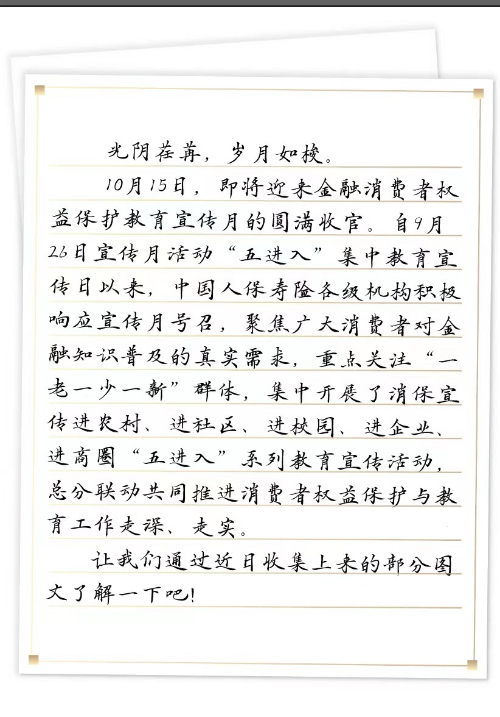 光阴荏苒，岁月如梭。
10月15日，即将迎来金融消费者权
益保护教育宣传月的圆满收官。自9月
26日宣传月活动“五进入”集中教育宣
传日以来，中国人保寿险各级机构积极
响应宣传月号召，聚焦广大消费者对金
融知识普及的真实需求，重点关注“一
老一少一新”群体，集中开展了消保宣
传进农村、进社区、进校园、进企业、
进商圈“五进入”系列教育宣传活动，
总分联动共同推进消费者权益保护与教
育工作走深、走实。
让我们通过近日收集上来的部分图
文了解一下吧！